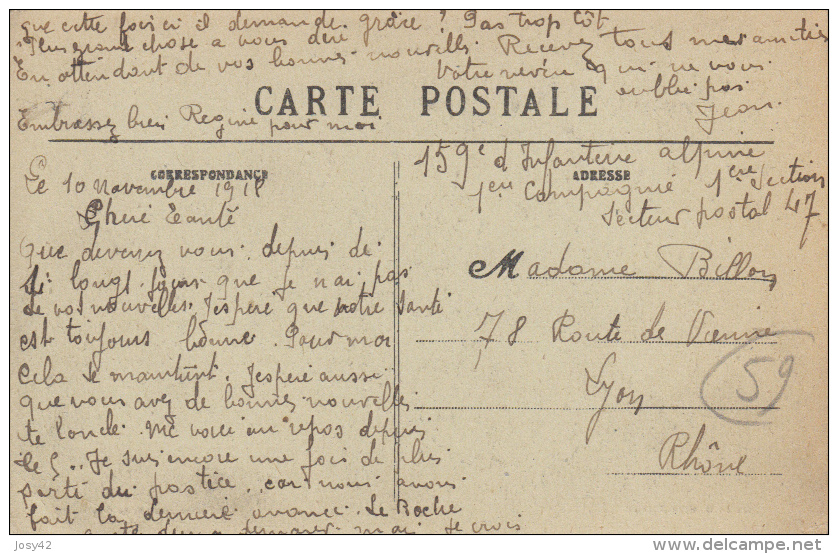 que cette fois ci il demande grâce ! Pas trop tôt
Plus grand chose a vous dire
En attendant de vos bonnes nouvelles. Recevez tous mes amities
Votre neveu qui ne vous
oublie pas
Jean.
Embrassez bien Regine pour moi
CARTE POSTALE
CORRESPONDANCE
ADRESSE
159e d'Infanterie alpine
1ere Compagnie 1ere Section
Secteur postal 47
Le 10 Novembre 1918
Chere Tante
Que devenez vous. depuis de
si longs jours que je n'ai pas
de vos nouvelles. J'espere que votre santé
est toujours bonne. Pour moi
cela se maintient. J'espere aussi
que vous avez de bonnes nouvelles
de l'oncle. Me voici au repos depuis
le 5.. Je suis encore une fois de plus
parti du .. car nous avons
fait la derniere avance. Le Boche
demander moi je crois
Madame Billon
78 Route de Vienne
Lyon
Rhône
59
Josy42
http://www.delcampe.net